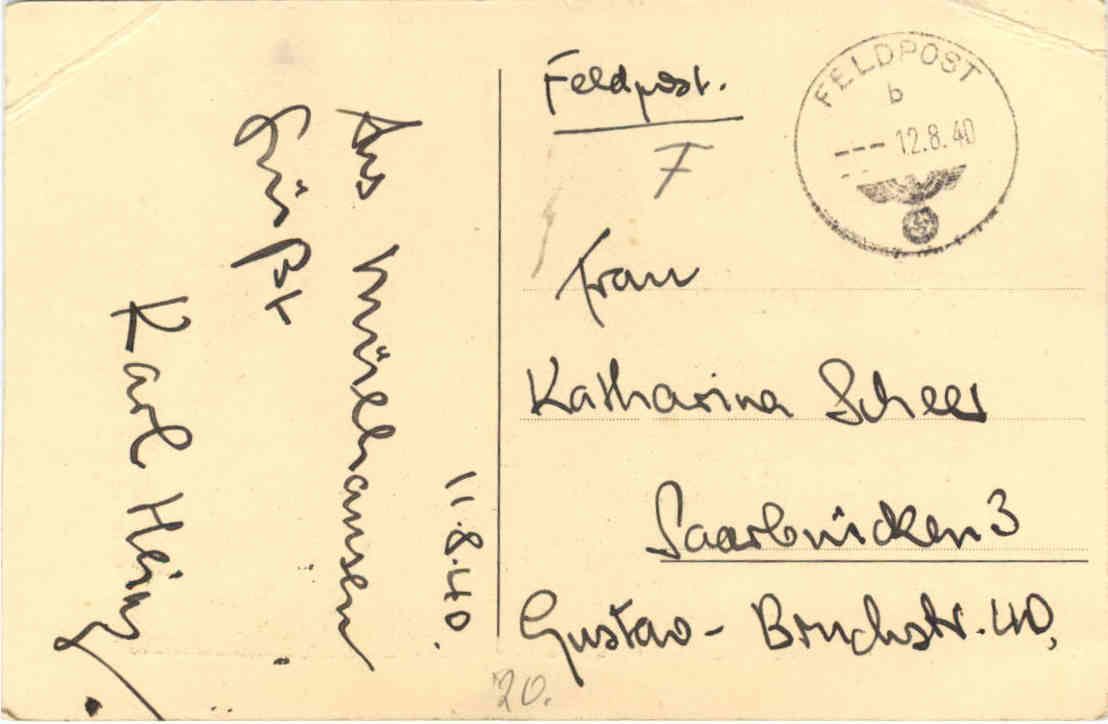 11.8.40.
Aus Mülhausen
Grüßt
Karl Heinz
Feldpost.
F
FELDPOST
b
--- 12.8.40
Frau
Katharina Scheer
Saarbrücken 3
Gustav-Bruchstr. 40.
20.